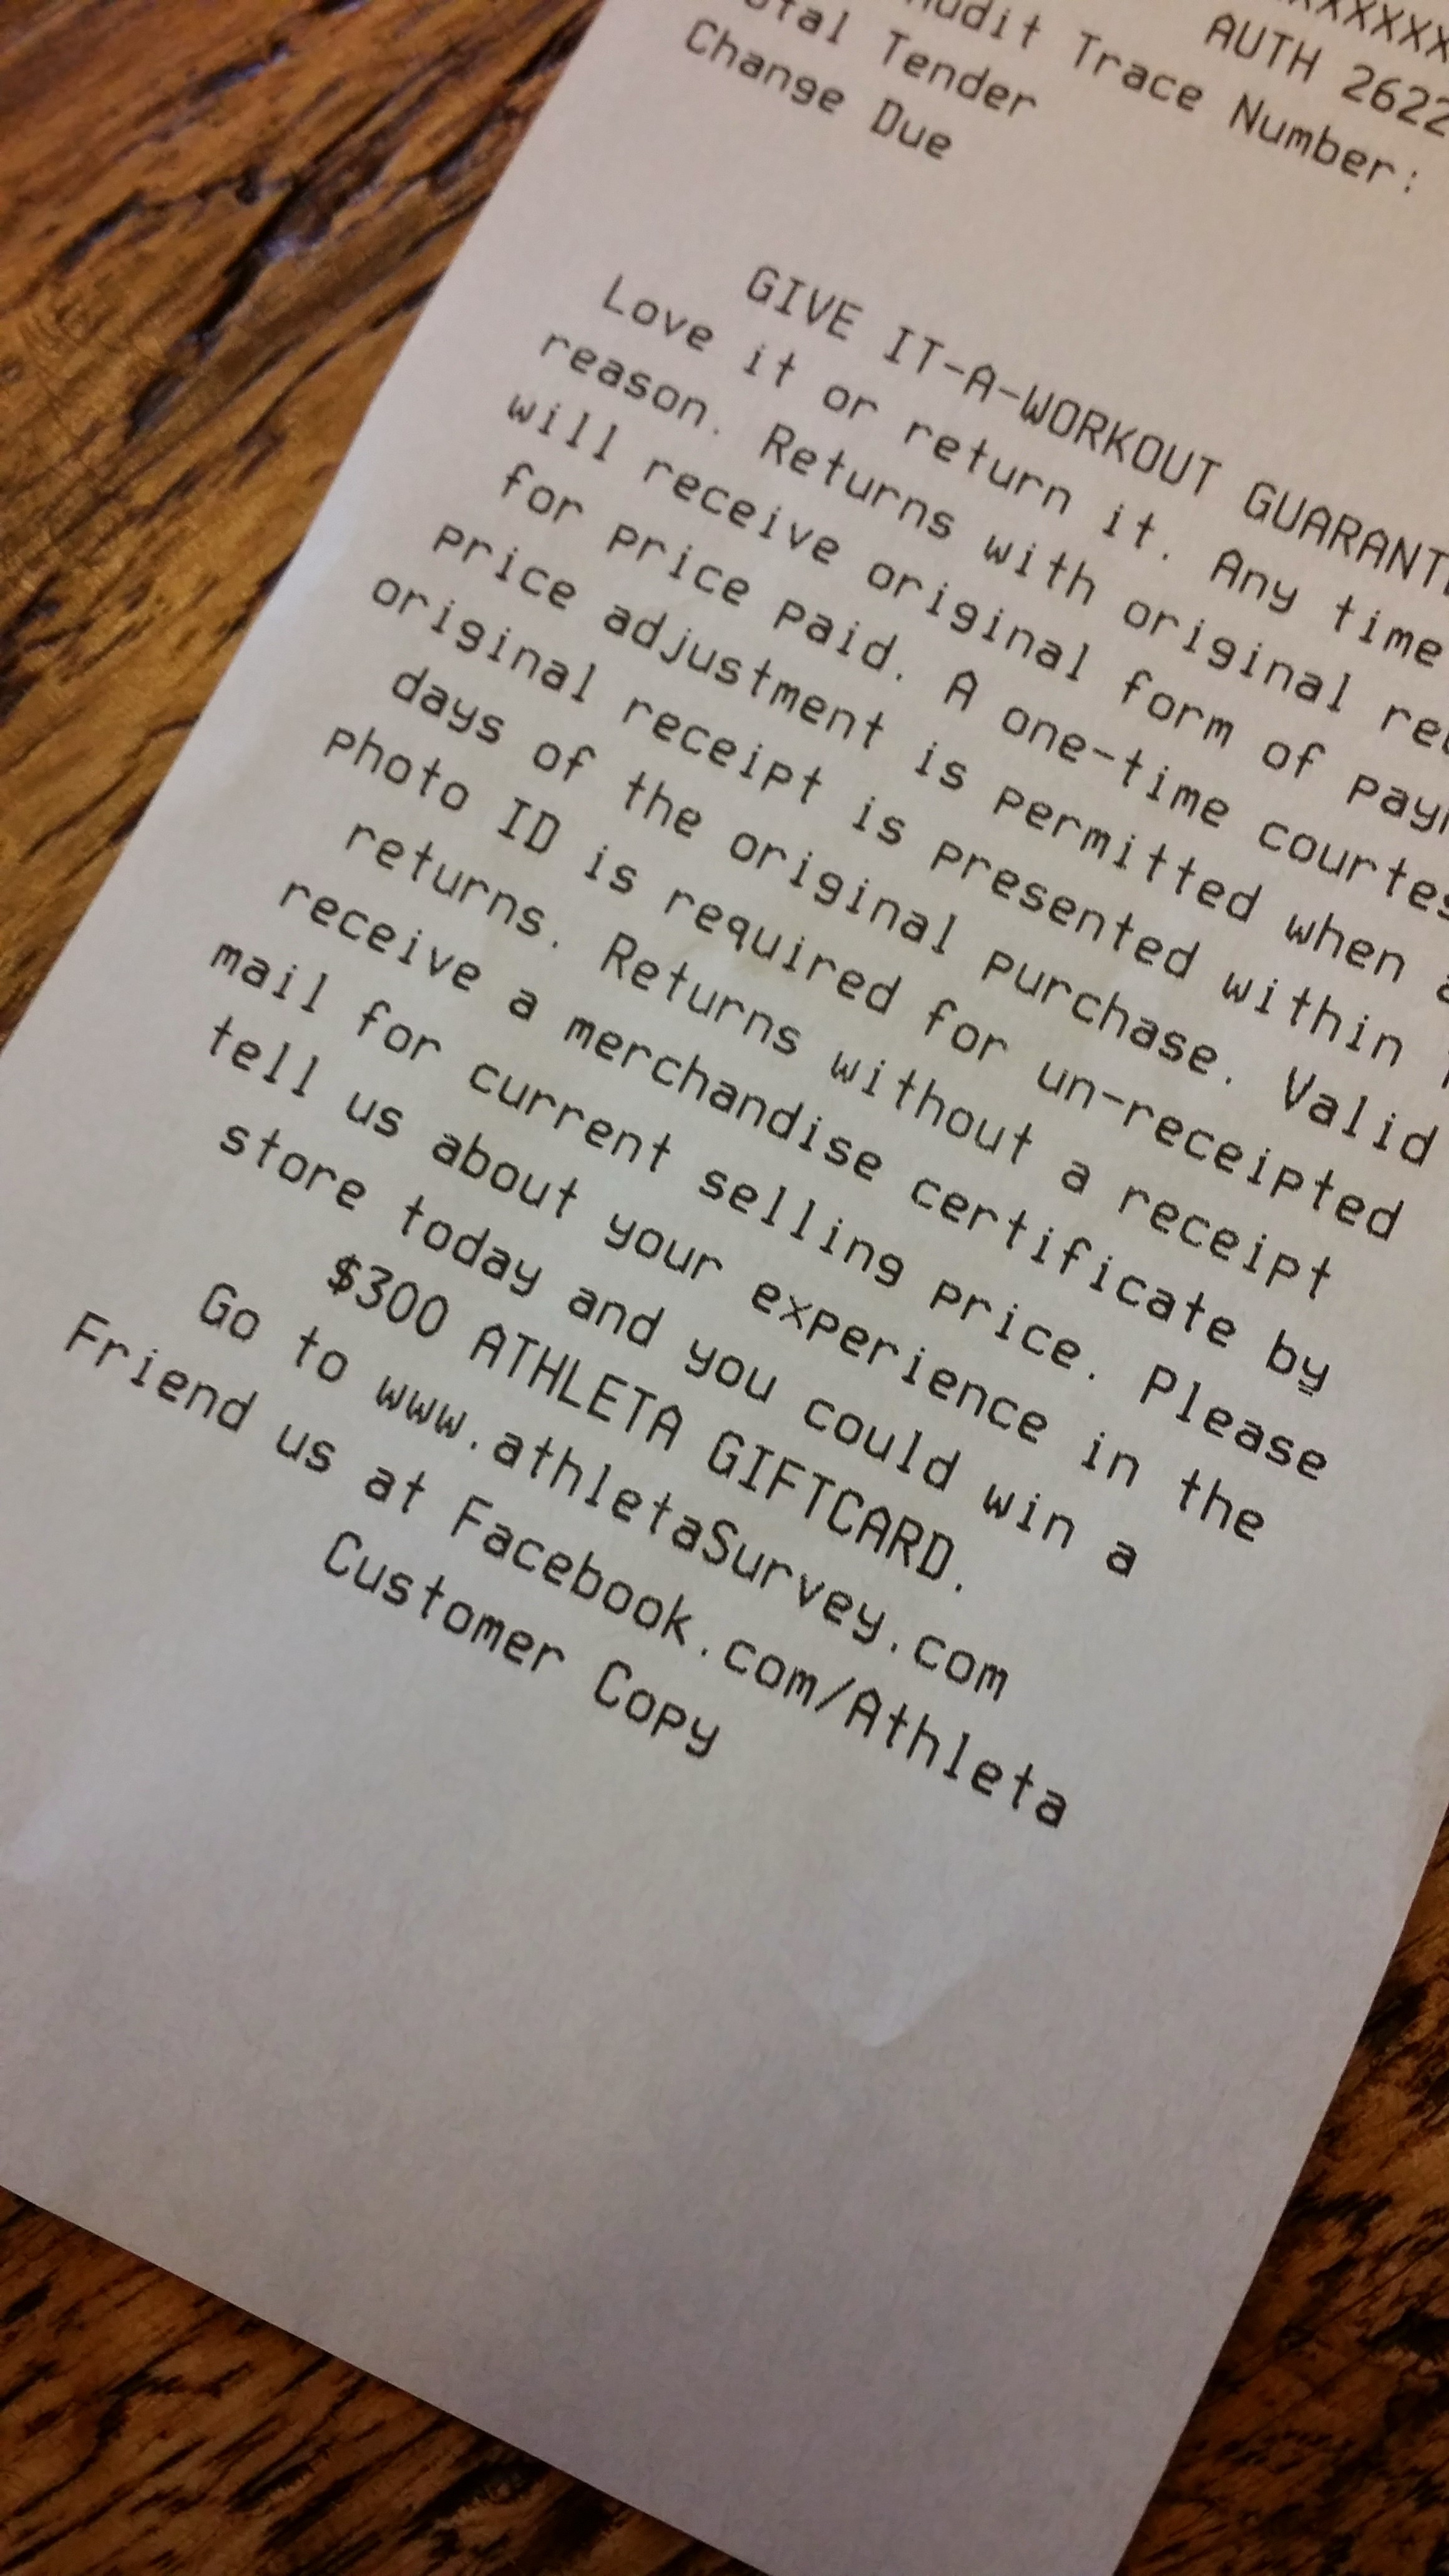 XXXXXXX
AUTH 2622
Audit Trace Number:
Total Tender
Change Due
GIVE IT-A-WORKOUT GUARANT
Love it or return it. Any time
reason. Returns with original
will receive original form of
for price paid. A one-time
price adjustment is permitted when
original receipt is presented within
days of the original purchase. Valid
photo ID is required for un-receipted
returns. Returns without a receipt
receive a merchandise certificate by
mail for current selling price. Please
tell us about your experience in the
store today and you could win a
$300 ATHLETA GIFTCARD.
Go to www.athletaSurvey.com
Friend us at Facebook.com/Athleta
Customer Copy